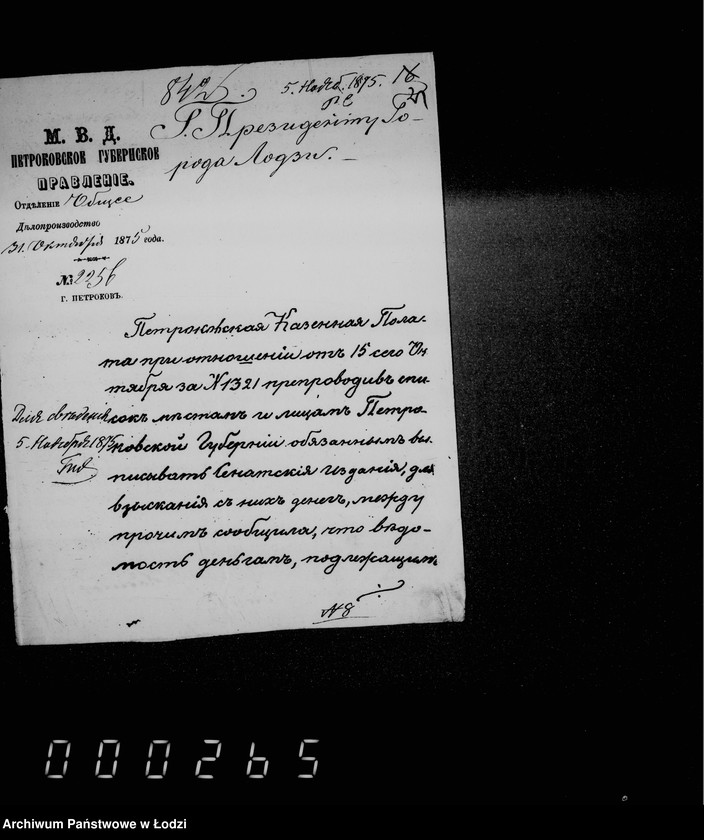 5. Нояб. 1875. 16
Г. Президенту Го-
рода Лодзи.
М. В. Д.
ПЕТРОКОВСКОЕ ГУБЕРНСКОЕ
ПРАВЛЕНІЕ.
Отдѣленіе Общее
Дѣлопроизводство
31. Октября 1875 года.
№ 2256
Г. ПЕТРОКОВЪ.
Петроковская Казенная Пола-
та при отношеніи отъ 15 сего Ок
тября за N 1321 препроводивъ спи
сокъ мѣстамъ и лицамъ Петро-
ковской Губерніи обязаннымъ вы
писывать Сенатскія Изданія, для
взысканія съ нихъ денегъ, между
прочимъ сообщила, что вѣдо-
мость деньгамъ, подлежащимъ
Для свѣденія
5. Ноября 1875
N 8
000265
Archiwum Państwowe w Łodzi